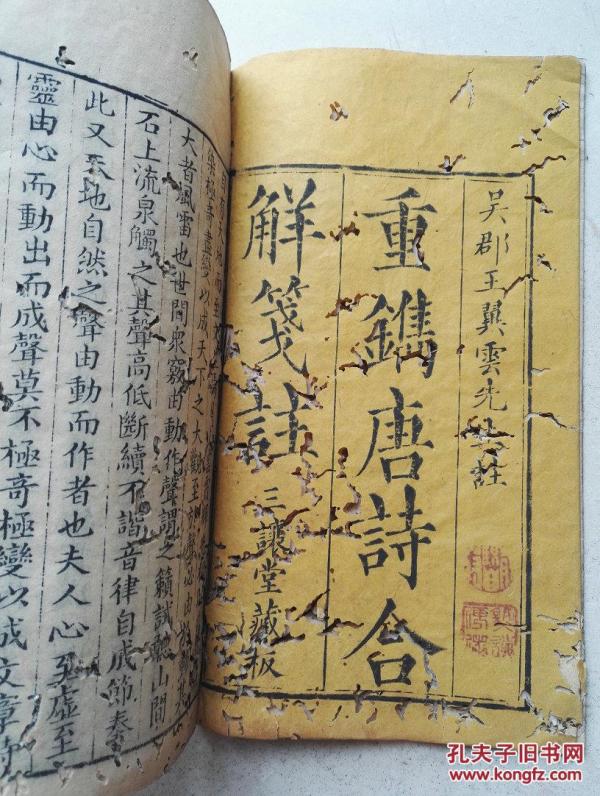 吳郡王翼雲先生註
重鐫唐詩合
解箋註
三讓堂藏板
大者風雷也世間衆竅由動作聲謂之籟試聽山間
石上流泉觸之其聲高低斷續不諧音律自成節奏
此又天地自然之聲由動而作者也夫人心至虛至
靈由心而動出而成聲莫不極奇極變以成文章詩
孔夫子旧书网
www.kongfz.com